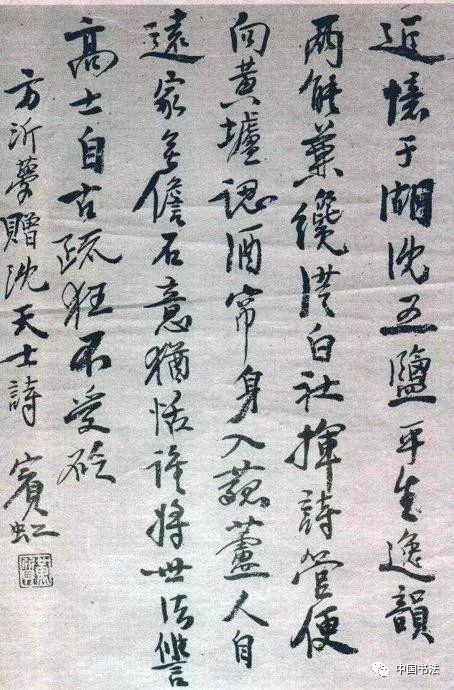 近懷于湖沈五鹽平生逸韻
兩能兼纔從白社揮詩管便
向黃壚認酒帘身入菰蘆人自
遠家無儋石意猶恬誰將世法訾
高士自古疏狂不受砭
方沂夢贈沈天士詩 賓虹
中国书法